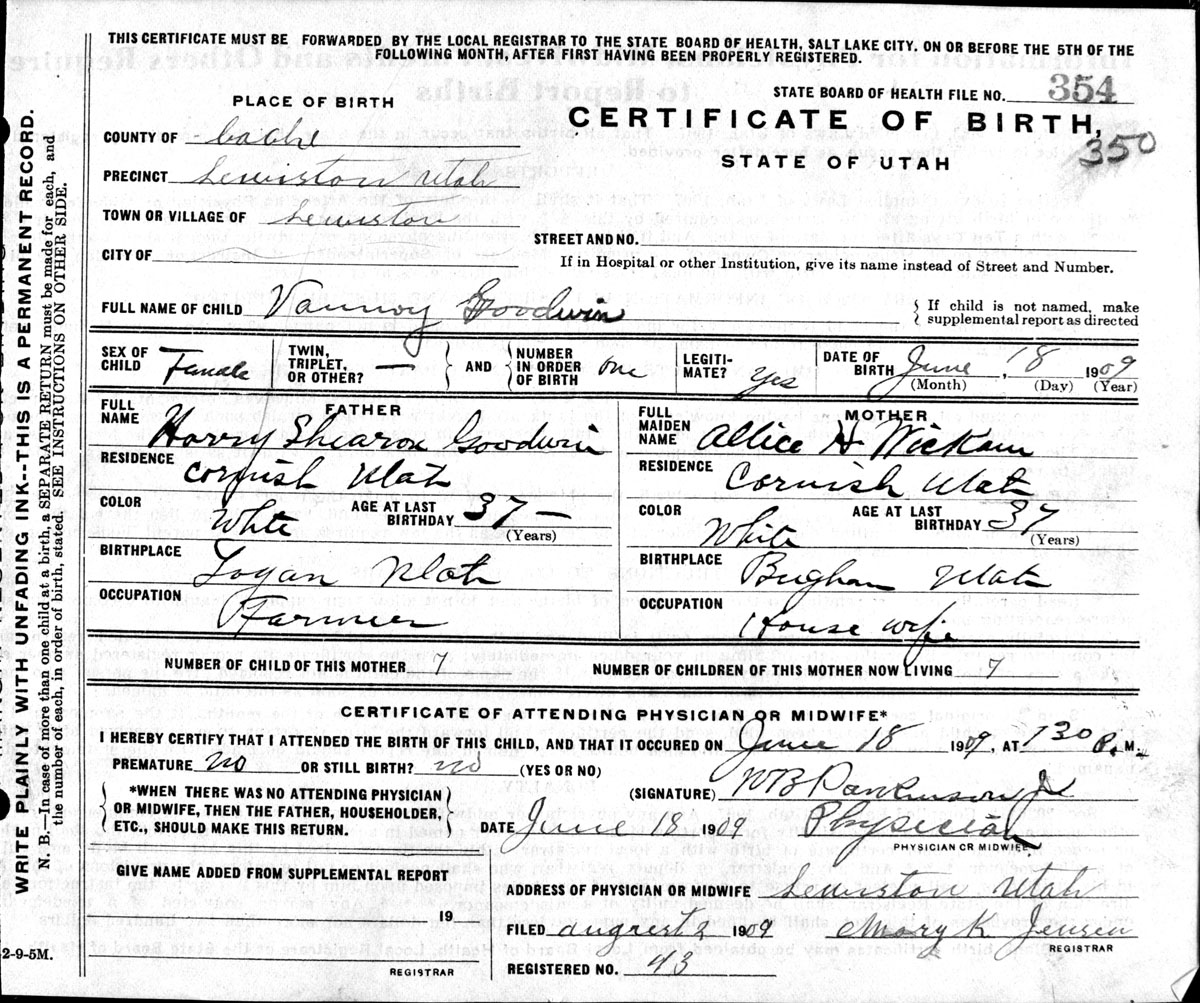 THIS CERTIFICATE MUST BE FORWARDED BY THE LOCAL REGISTRAR TO THE STATE BOARD OF HEALTH, SALT LAKE CITY. ON OR BEFORE THE 5TH OF THE
FOLLOWING MONTH, AFTER FIRST HAVING BEEN PROPERLY REGISTERED.
STATE BOARD OF HEALTH FILE NO. 354
PLACE OF BIRTH
CERTIFICATE OF BIRTH,
350
STATE OF UTAH
COUNTY OF Cache
PRECINCT Lewiston Utah
TOWN OR VILLAGE OF Lewiston
STREET AND NO.
CITY OF
If in Hospital or other Institution, give its name instead of Street and Number.
FULL NAME OF CHILD Vannoy Goodwin
If child is not named, make
supplemental report as directed
SEX OF CHILD Female
TWIN, TRIPLET, OR OTHER? —
AND
NUMBER IN ORDER OF BIRTH one
LEGITIMATE? yes
DATE OF BIRTH June, 18 1909
(Month) (Day) (Year)
FATHER
FULL NAME Harry Shearon Goodwin
RESIDENCE Cornish Utah
COLOR White
AGE AT LAST BIRTHDAY 37 —
(Years)
BIRTHPLACE Logan Utah
OCCUPATION Farmer
MOTHER
FULL MAIDEN NAME Allice H Wickam
RESIDENCE Cornish Utah
COLOR White
AGE AT LAST BIRTHDAY 37
(Years)
BIRTHPLACE Brigham Utah
OCCUPATION House wife
NUMBER OF CHILD OF THIS MOTHER 7
NUMBER OF CHILDREN OF THIS MOTHER NOW LIVING 7
CERTIFICATE OF ATTENDING PHYSICIAN OR MIDWIFE*
I HEREBY CERTIFY THAT I ATTENDED THE BIRTH OF THIS CHILD, AND THAT IT OCCURED ON June 18 1909, AT 130 P. M.
PREMATURE no OR STILL BIRTH? no (YES OR NO)
*WHEN THERE WAS NO ATTENDING PHYSICIAN
OR MIDWIFE, THEN THE FATHER, HOUSEHOLDER,
ETC., SHOULD MAKE THIS RETURN.
(SIGNATURE) WB Parkinson Jr
DATE June 18 1909 Physician
PHYSICIAN OR MIDWIFE
GIVE NAME ADDED FROM SUPPLEMENTAL REPORT
19
REGISTRAR
ADDRESS OF PHYSICIAN OR MIDWIFE Lewiston Utah
FILED August 2 1909 Mary K Jensen
REGISTRAR
REGISTERED NO. 43
2-9-5M.
WRITE PLAINLY WITH UNFADING INK--THIS IS A PERMANENT RECORD.
N. B.—In case of more than one child at a birth, a SEPARATE RETURN must be made for each, and
the number of each, in order of birth, stated. SEE INSTRUCTIONS ON OTHER SIDE.